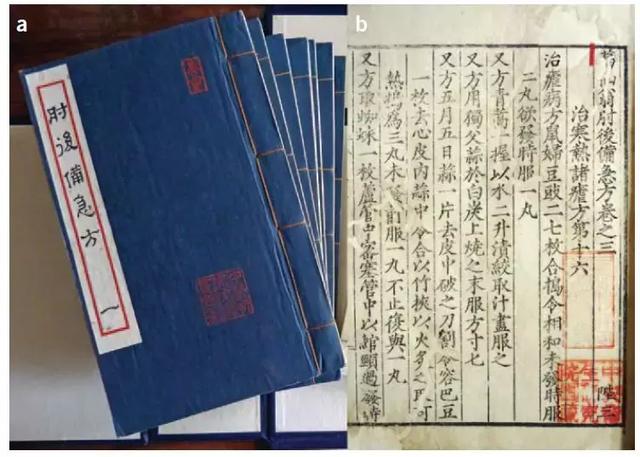 a
肘後備急方 一
b
葛仙翁肘後備急方卷之三
治寒熱諸瘧方第十六
治瘧病方鼠婦豆豉二七枚合搗令相和未發時服
二丸欲發時服一丸
又方青蒿一握以水二升漬絞取汁盡服之
又方用獨父蒜於白炭上燒之末服方寸七
又方五月五日蒜一片去皮中破之刀割令容巴豆
一枚去心皮內蒜中令合以竹挾以火炙之取可
熱搗爲三丸未發前服一丸不止復與一丸
又方取蜘蛛一枚蘆管中密塞管中以綰頸過發時